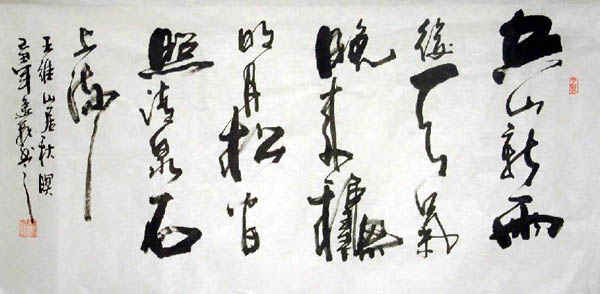 空山新雨
後天氣
晚来穐
明月松间
照清泉石
上流
王維山居秋暝
己丑年